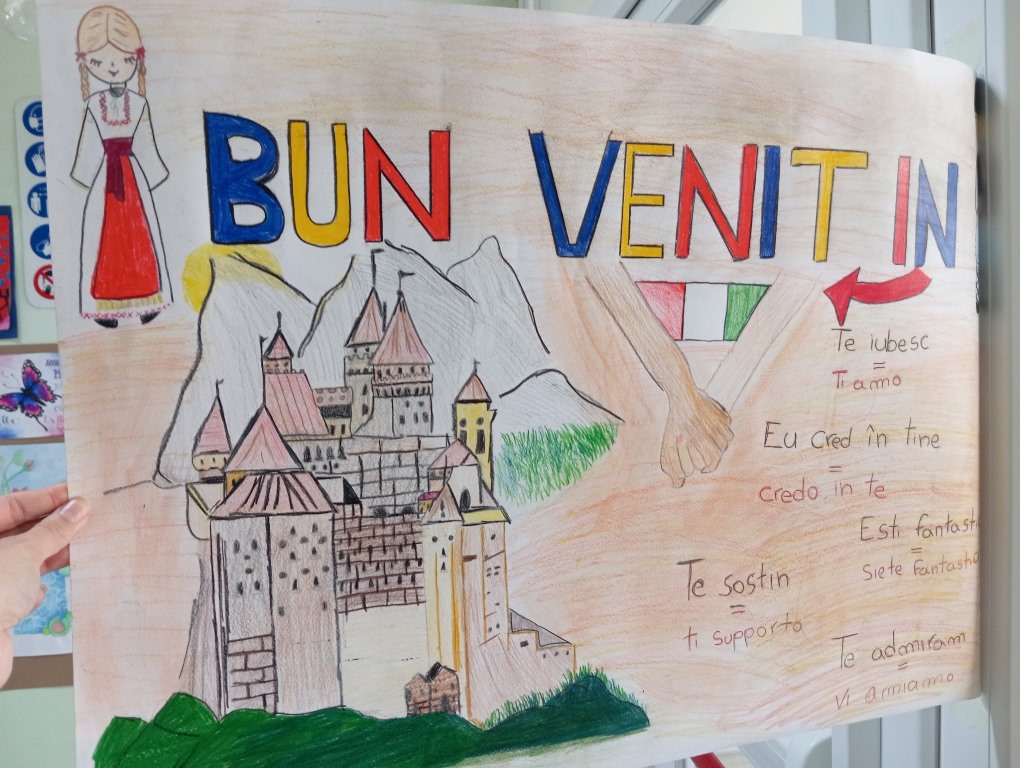 BUN VENIT IN
Te iubesc
=
Ti amo
Eu cred în tine
=
credo in te
Esti
=
Siete
Te sostin
=
ti supporto
Te admiram
=
vi amiamo